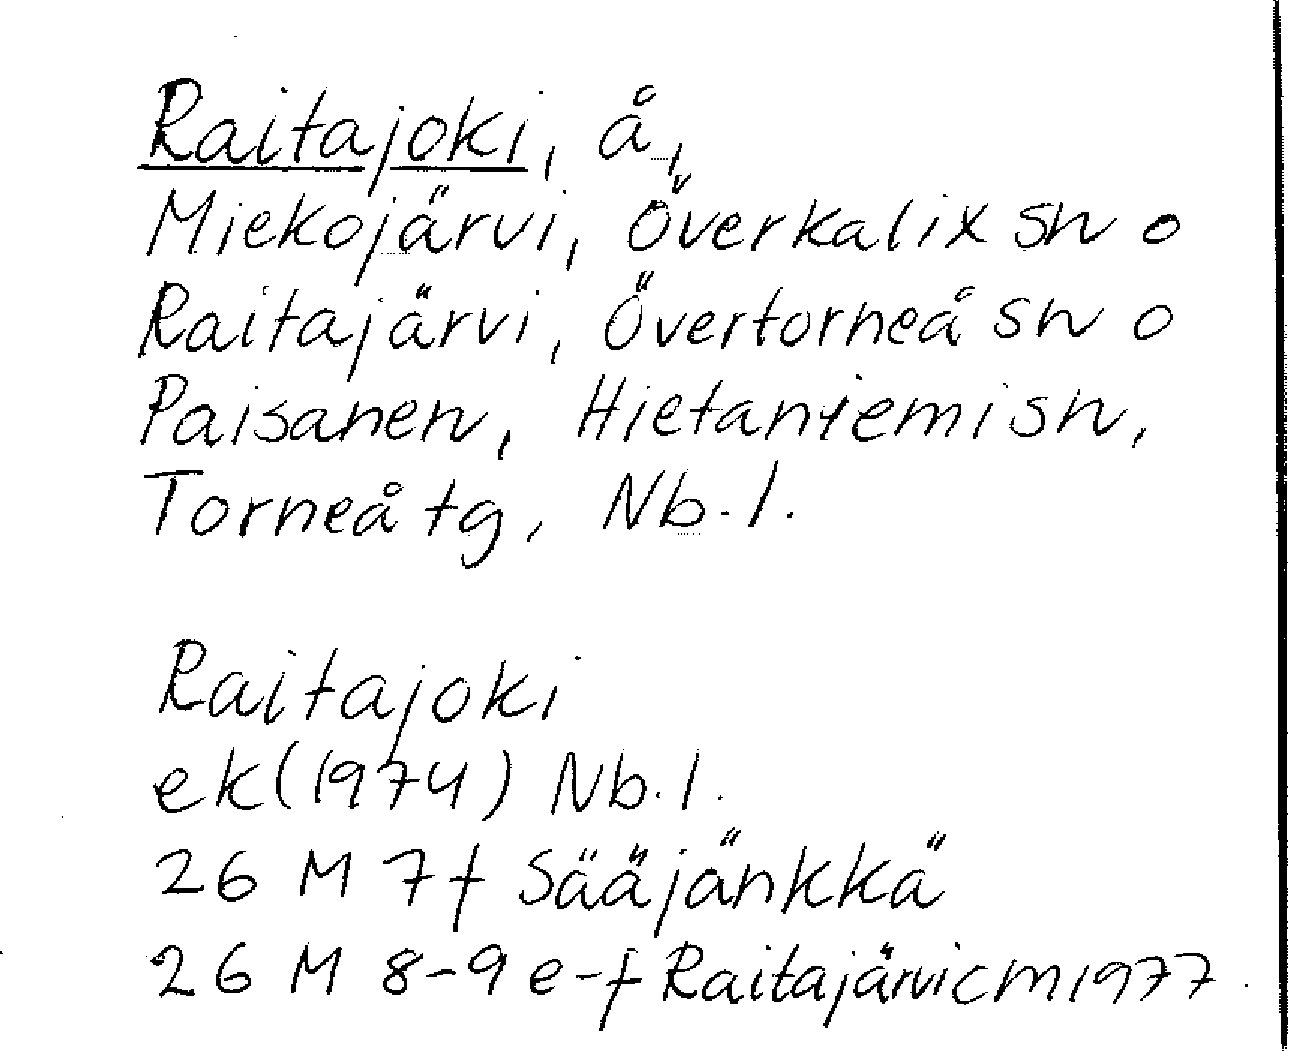 Raitajoki, å,
Miekojärvi, Överkalix sn o
Raitajärvi, Övertorneå sn o
Paisanen, Hietaniemi sn,
Torneå tg, Nb.l.
Raitajoki
ek (1974) Nb.l.
26 M 7f Sääjänkkä
26 M 8-9 e-f Raitajärvi cm 1977